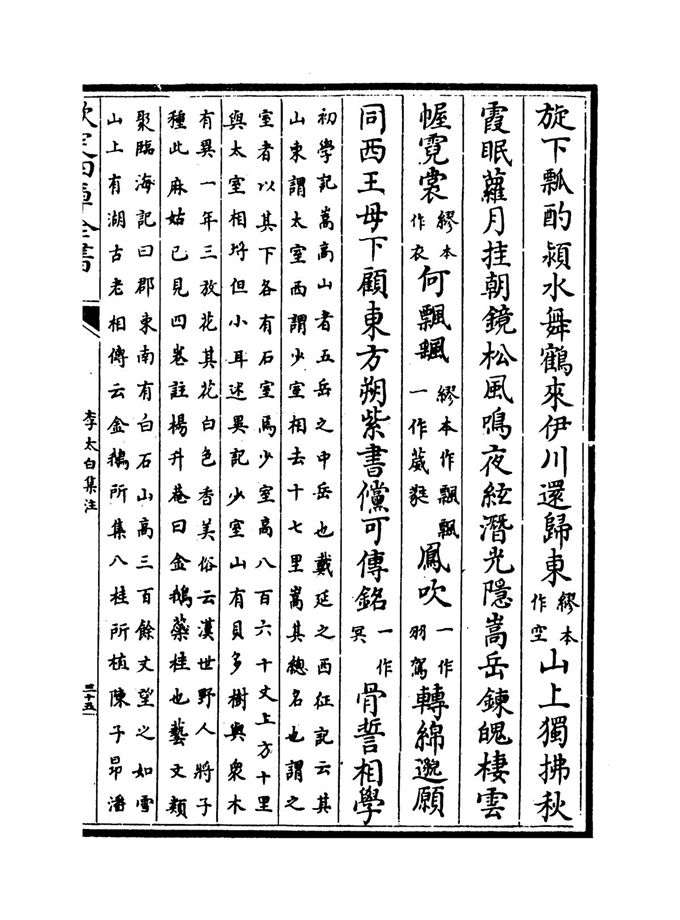 旋下瓢酌潁水舞鶴來伊川還歸東繆本作空山上獨拂秋
霞眠蘿月挂朝鏡松風鳴夜絃潛光隱嵩岳鍊魄棲雲
幄霓裳繆本作衣何飄颻繆本作飄飄一作葳蕤鳳吹一作羽駕轉綿邈願
同西王母下顧東方朔紫書儻可傳銘一作冥骨誓相學
初學記嵩高山者五岳之中岳也戴延之西征記云其
山東謂太室西謂少室相去十七里嵩其總名也謂之
室者以其下各有石室焉少室高八百六十丈上方十里
與太室相埒但小耳述異記少室山有貝多樹與衆木
有異一年三放花其花白色香美俗云漢世野人將子
種此麻姑已見四卷註楊升菴曰金鵝蘂桂也藝文類
聚臨海記曰郡東南有白石山高三百餘丈望之如雪
山上有湖古老相傳云金鵝所集八桂所植陳子昂潘
欽定四庫全書
李太白集注
三十五